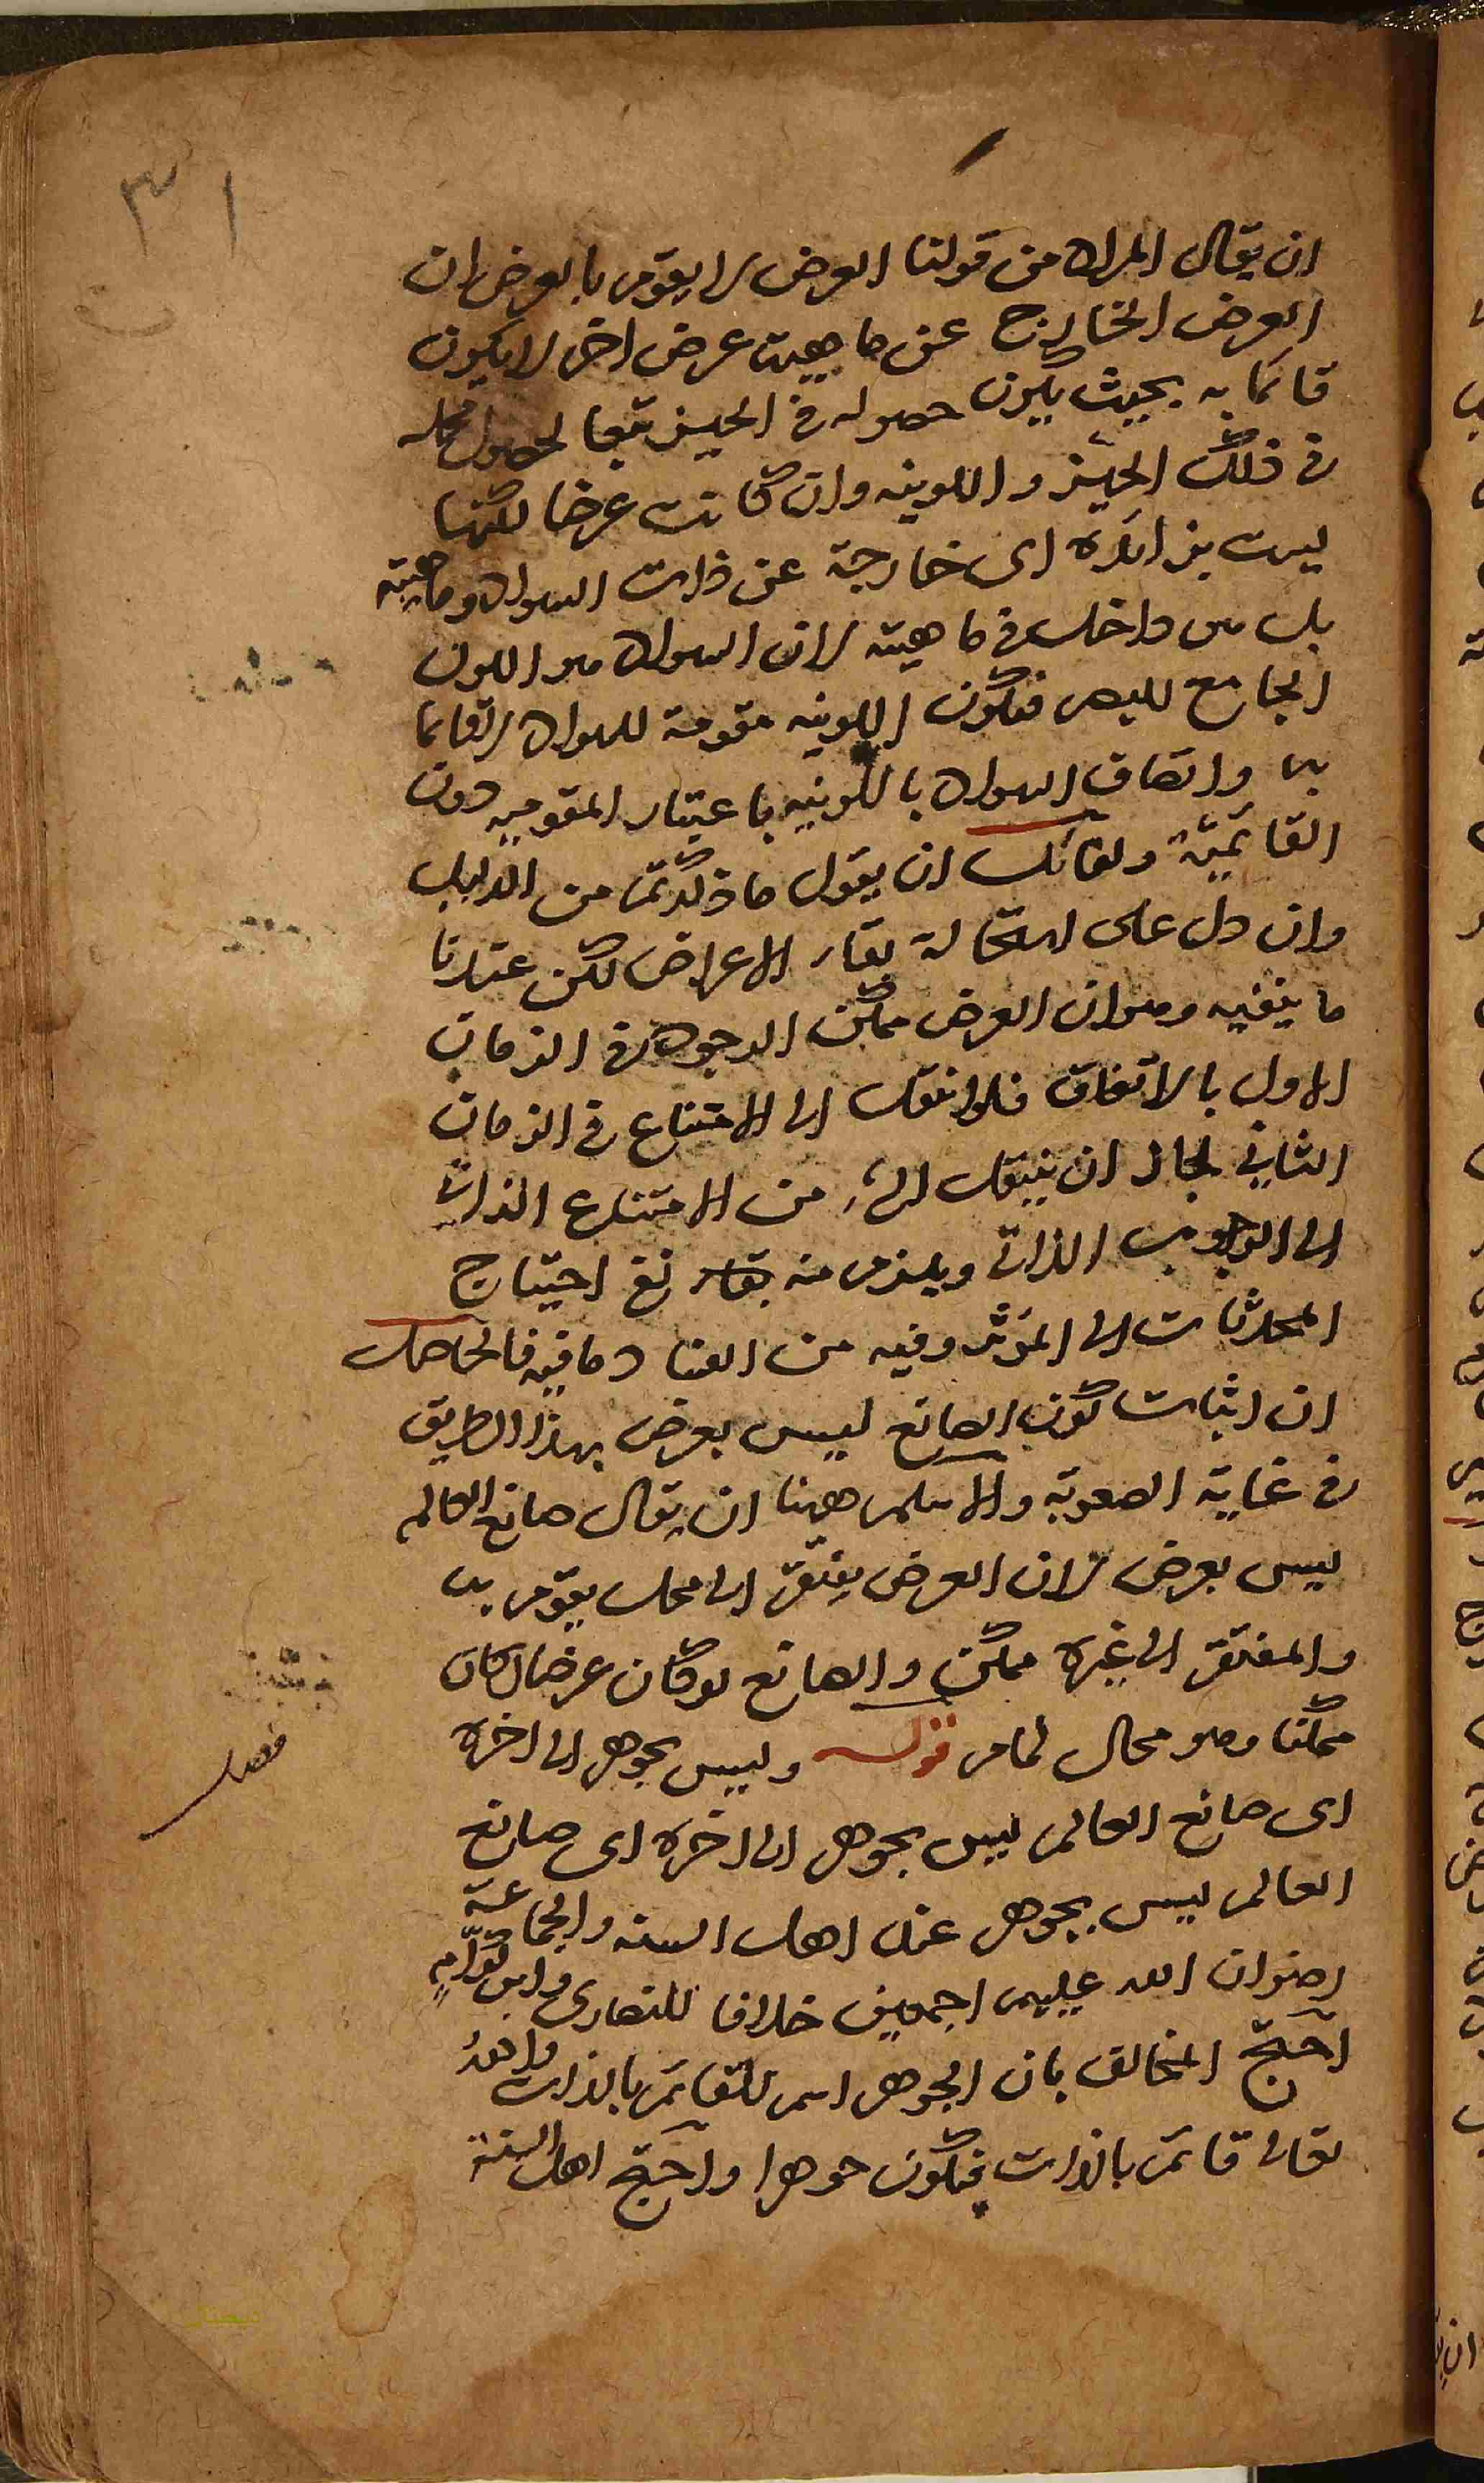 ٣١
ان يقال المراد من قولنا العرض لا يقوم بالعرض ان
العرض الخارج عن ماهيت عرض اخر لا يكون
قائما به بحيث يكون حصوله في الحيز تبعا لحصول محله
في ذلك الحيّز واللونيه وان كانت عرضا لكنها
ليست بزائدة اى خارجة عن ذات السواد وماهيته
بل هى داخل فى ماهيته لان السواد هو اللون
الجامع للبصر فتكون اللونيه مقومة للسواد لا قائما
بها واتصاف السواد باللونيه باعتبار المقوميه دون
القائميّة ولقائل ان يقول ما ذكرتم من الدليل
وان دل على استحالة بقاء الاعراض لكن عندنا
ما ينفيه وهو ان العرض ممكن الوجود في الزمان
الاول بالاتفاق فلو انتقل الى الامتناع في الزمان
الثاني لجاز ان ينتقل الشئ من الامتناع الذاتي
الى الوجوب الذاتي ويلزم منه نفى احتياج
المحدثات الى المؤثر وفيه من الفساد ما فيه فالحاصل
ان اثبات كون الصانع ليس بعرض بهذا الطريق
في غاية الصعوبة والاسلم ههنا ان يقال صانع العالم
ليس بعرض لان العرض يفتقر الى محل يقوم به
والمفتقر الى غيره ممكن والصانع لو كان عرضا لكان
ممكنا وهو محال لما مر قوله وليس بجوهر الى اخره
فصل
اى صانع العالم ليس بجوهر الى اخره اى صانع
العالم ليس بجوهر عند اهل السنه والجماعة
رضوان الله عليهم اجمعين خلافا للنصارى وابن كرّام
احتجّ المخالف بان الجوهر اسم للقائم بالذات والله
تعالى قائم بالذات فيكون جوهرا واحتج اهل السنة